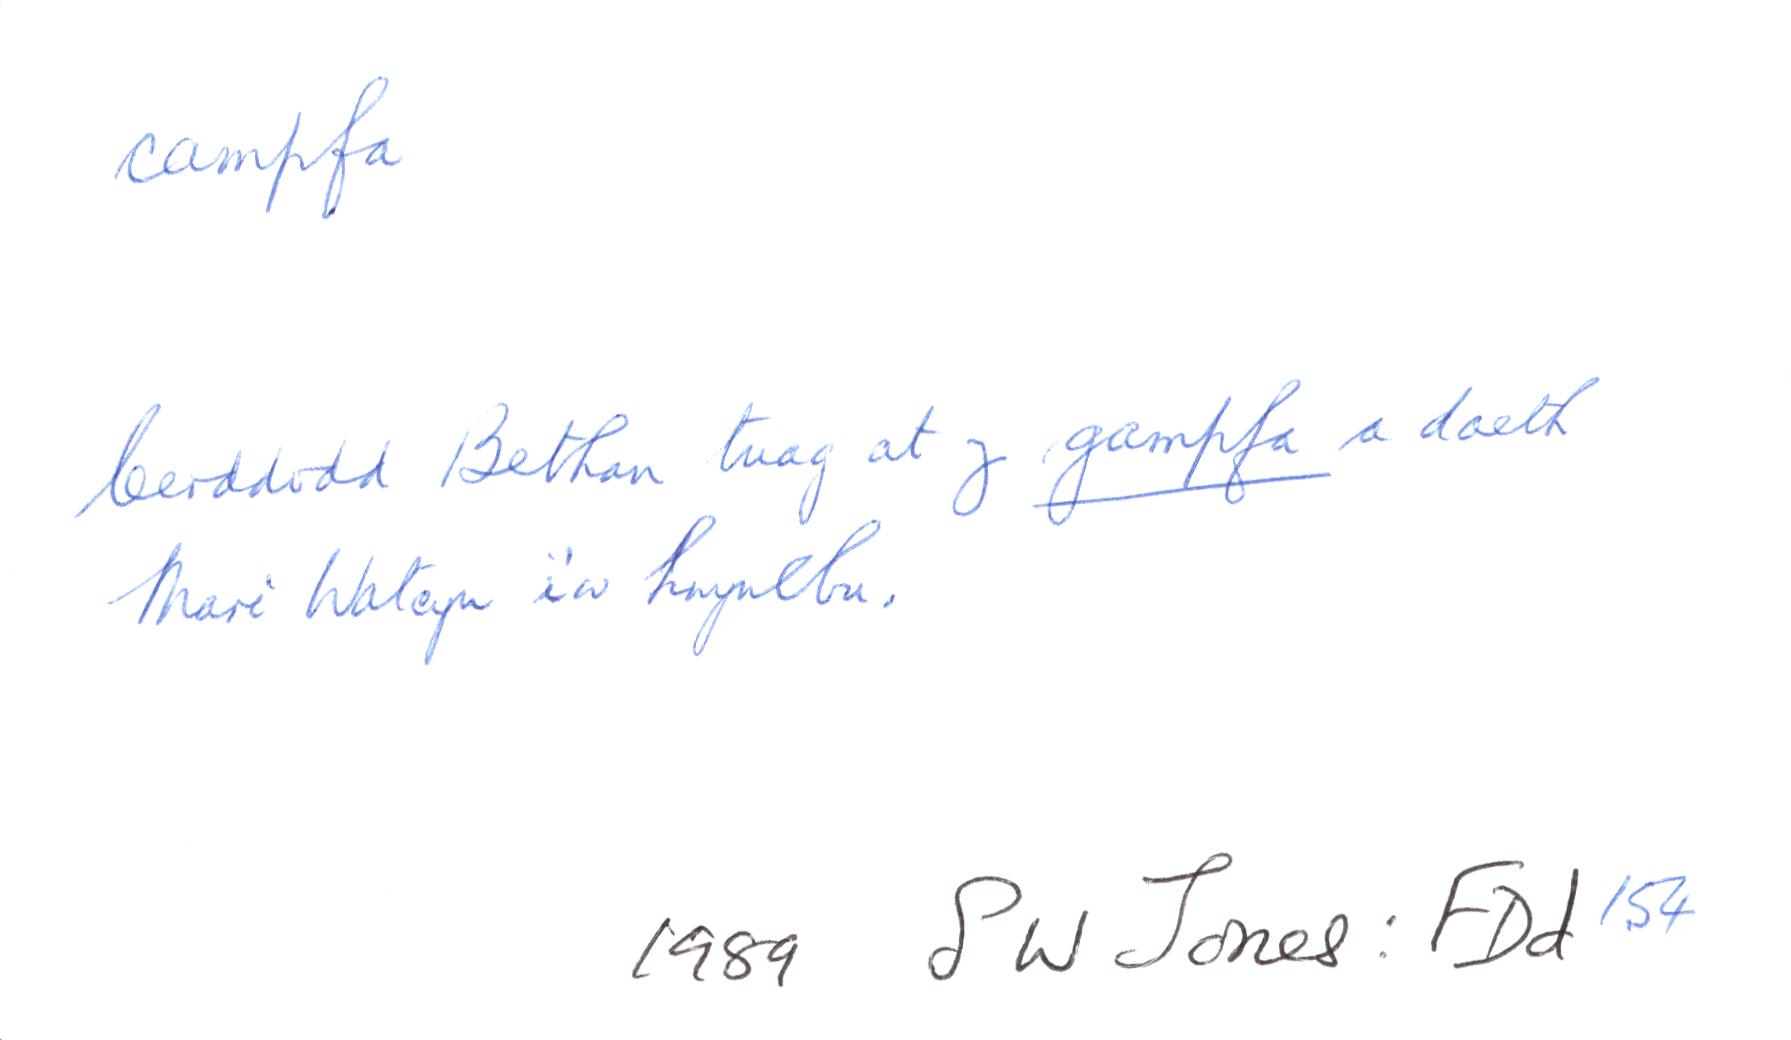 campfa
Cerddodd Bethan tuag at y gampfa a daeth
Mari Watcyn i'w hwynebu.
1989 SW Jones: FDd 154